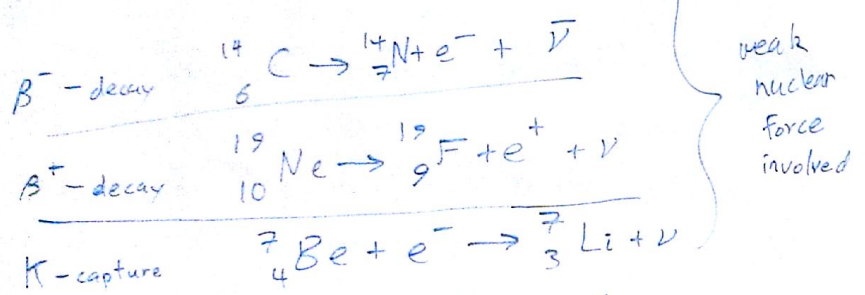 β⁻-decay ¹⁴₆C → ¹⁴₇N + e⁻ + ν̄
β⁺-decay ¹⁹₁₀Ne → ¹⁹₉F + e⁺ + ν
K-capture ⁷₄Be + e⁻ → ⁷₃Li + ν
weak
nuclear
force
involved